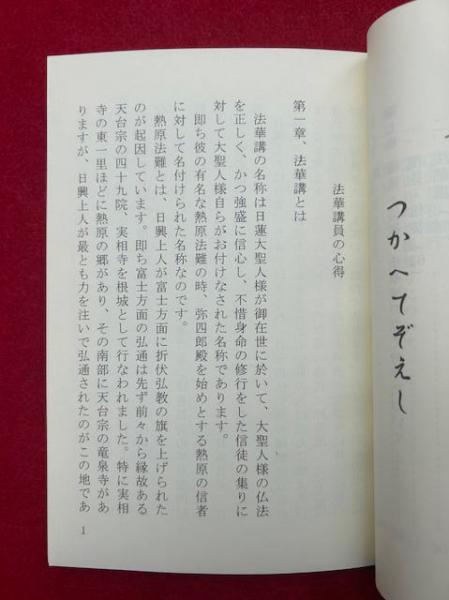 つかへてぞえし
法華講員の心得
第一章、法華講とは
法華講の名称は日蓮大聖人様が御在世に於いて、大聖人様の仏法
を正しく、かつ強盛に信心し、不惜身命の修行をした信徒の集りに
対して大聖人様自らがお付けなされた名称であります。
即ち彼の有名な熱原法難の時、弥四郎殿を始めとする熱原の信者
に対して名付けられた名称なのです。
熱原法難とは、日興上人が富士方面に折伏弘教の旗を上げられた
のが起因しています。即ち富士方面の弘通は先ず前々から縁故ある
天台宗の四十九院、実相寺を根城として行なわれました。特に実相
寺の東一里ほどに熱原の郷があり、その南部に天台宗の竜泉寺があ
りますが、日興上人が最とも力を注いで弘通されたのがこの地であ
1